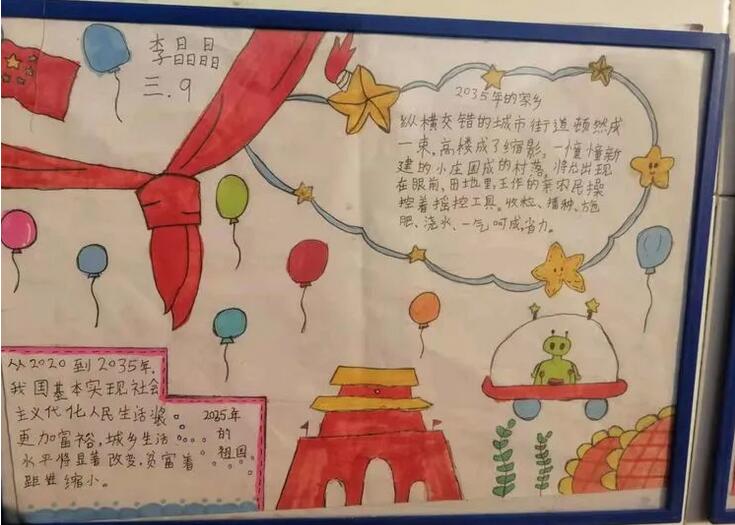 李晶晶
三.9
2035年的家乡
纵横交错的城市街道顿然成
一束,高楼成了缩影,一憧憧新
建的小庄园成的村落,将允出现
在眼前,田地里,工作的亲农民操
控着摇控工具。收粒、播种、施
肥、浇水、一气呵成,省力。
从2020到2035年,
我国基本实现社会
主义代化人民生活
更加富裕,城乡生活
水平将显著改变,贫富着
距进缩小。
2035年
的
祖国